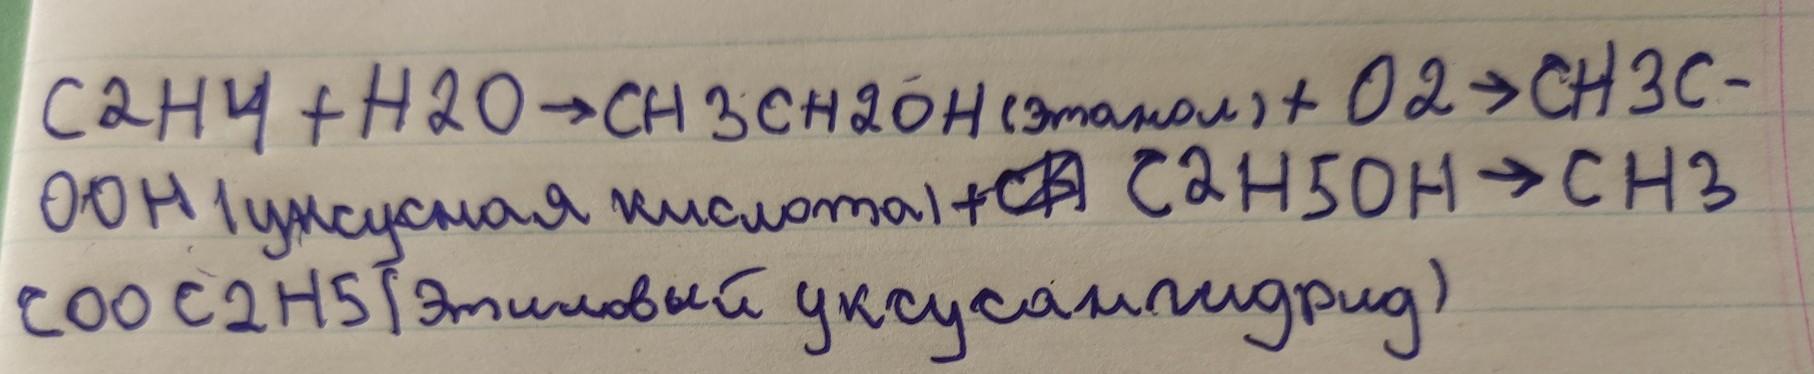 C2H4+H2O→CH3CH2OH(этанол)+O2→CH3C-
OOH(уксусная кислота)+ C2H5OH→CH3
COOC2H5(Этиловый уксусангидрид)